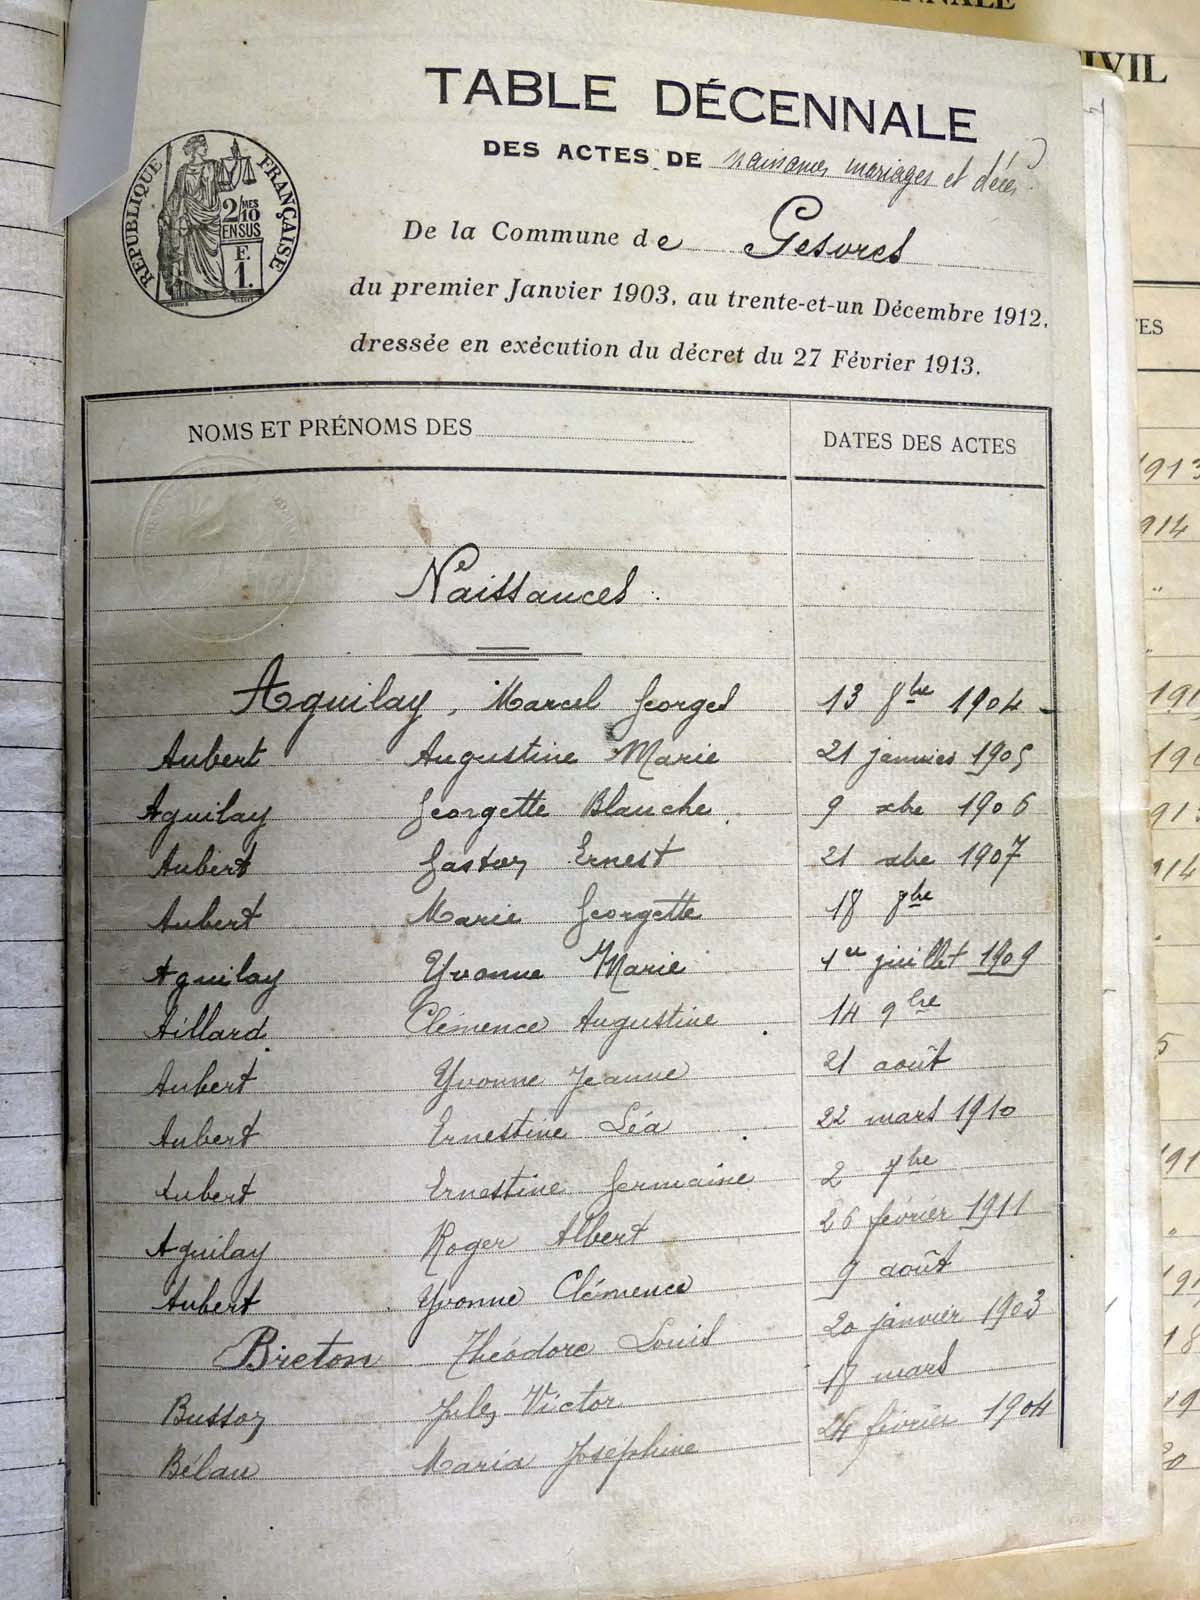 ENNALE
IVIL
TABLE DÉCENNALE
DES ACTES DE naissances mariages et décès
RÉPUBLIQUE FRANÇAISE
2/10 MES
EN SUS
F.
1.
De la Commune de Gesvres
du premier Janvier 1903, au trente-et-un Décembre 1912,
dressée en exécution du décret du 27 Février 1913.
NOMS ET PRÉNOMS DES DATES DES ACTES
TES
Naissances
Aguilay, Marcel Georges 13 8bre 1904
Aubert Augustine Marie 21 janvier 1905
Aguilay Georgette Blanche 9 xbre 1906
Aubert Gaston Ernest 21 xbre 1907
Aubert Marie Georgette 18 8bre
Aguilay Yvonne Marie 1er juillet 1909
Aillard Clémence Augustine 14 9bre
Aubert Yvonne Jeanne 21 août
Aubert Ernestine Léa 22 mars 1910
Aubert Ernestine Germaine 2 7bre
Aguilay Roger Albert 26 fevrier 1911
Aubert Yvonne Clémence 9 août
Breton Théodore Louis 20 janvier 1903
Busson Jules Victor 18 mars
Bélau Maria Joséphine 24 février 1904
1913
914